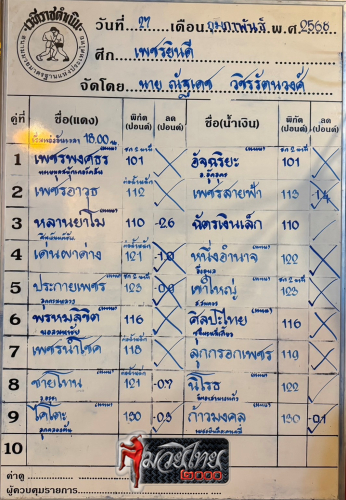 เวทีราชดำเนิน
วันที่ 27 เดือน กุมภาพันธ์ พ.ศ. 2568
ศึก เพชรยินดี
จัดโดย นาย ณัฐเดช วชิรรัตนวงศ์
คู่ที่ ชื่อ(แดง) พิกัด (ปอนด์) ลด (ปอนด์) ชื่อ(น้ำเงิน) พิกัด (ปอนด์) ลด (ปอนด์)
18.00
1 เพชรพงศธร 101 อัจฉริยะ 101
2 เพชรอาวุธ 112 เพชรสายฟ้า 113 -1.4
3 หลานยาโม 110 -2.6 ฉัตรเงินเล็ก 110
4 เด่นผาด่าง 121 -1.0 หนึ่งอำนาจ 122
5 ประกายเพชร 123 เขาใหญ่ 123
6 พรหมลิขิต 116 ศิลปะไทย 116
7 เพชรนำโชค 118 ลูกกรอกเพชร 119
8 ชายโทน 121 -0.7 นิโรธ 122
9 โคโตะ 130 ก้าวมงคล 130 -0.1
10
ค่าตู
ผู้ควบคุมรายการ
มวยไทย
2000